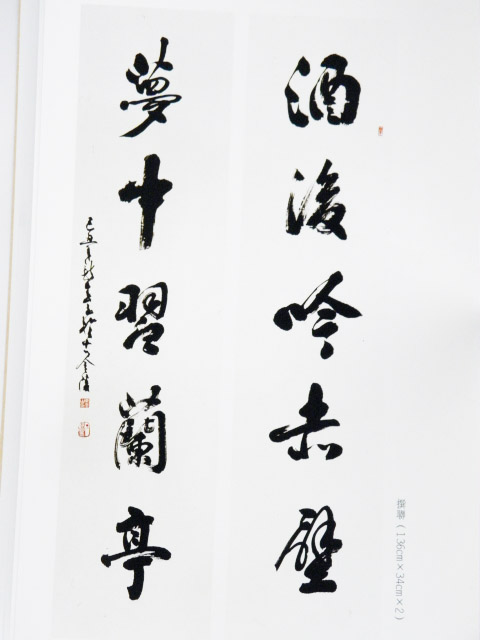 酒後吟赤壁
夢中習蘭亭
己丑
金陵
撰聯（136cm×34cm×2）